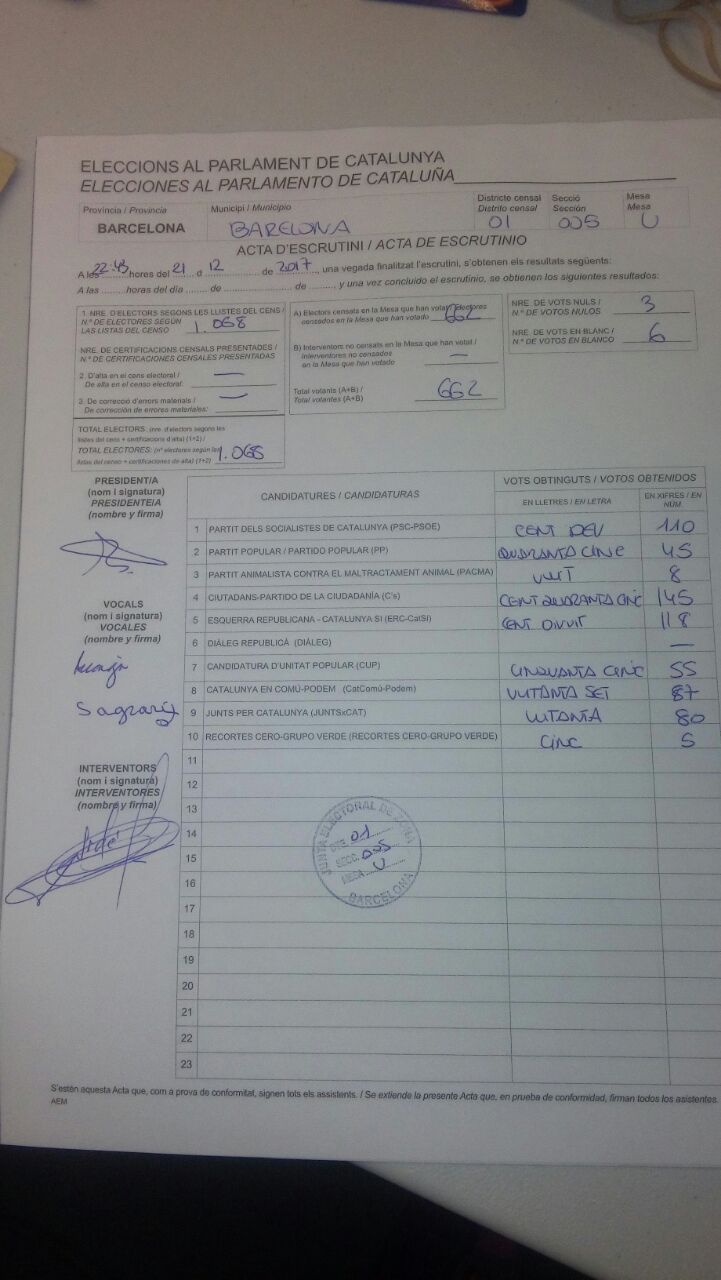 ELECCIONS AL PARLAMENT DE CATALUNYA
ELECCIONES AL PARLAMENTO DE CATALUÑA
Provincia / Provincia Municipi / Municipio Districte censal Secció Mesa
Distrito censal Sección Mesa
BARCELONA BARCELONA 01 005 U
ACTA D'ESCRUTINI / ACTA DE ESCRUTINIO
A les 22:43 hores del 21 d 12 de 2017, una vegada finalitzat l'escrutini, s'obtenen els resultats següents:
A las ........ horas del día ........ de ........ de ........, y una vez concluido el escrutinio, se obtienen los siguientes resultados:
1. NRE. D'ELECTORS SEGONS LES LLISTES DEL CENS /
N.º DE ELECTORES SEGÚN
LAS LISTAS DEL CENSO 1.068
NRE. DE CERTIFICACIONS CENSALS PRESENTADES /
N.º DE CERTIFICACIONES CENSALES PRESENTADAS
2. D'alta en el cens electoral / —
De alta en el censo electoral:
3. De correcció d'errors materials / —
De corrección de errores materiales:
TOTAL ELECTORS: (nre. d'electors segons les
llistes del cens + certificacions d'alta) (1+2) /
TOTAL ELECTORES: (nº electores según las 1.068
listas del censo + certificaciones de alta) (1+2)
A) Electors censats en la Mesa que han votat / Electores
censados en la Mesa que han votado 662
B) Interventors no censats en la Mesa que han votat /
Interventores no censados
en la Mesa que han votado —
Total votants (A+B) /
Total votantes (A+B) 662
NRE. DE VOTS NULS /
N.º DE VOTOS NULOS 3
NRE. DE VOTS EN BLANC /
N.º DE VOTOS EN BLANCO 6
PRESIDENT/A
(nom i signatura)
PRESIDENTE/A
(nombre y firma)
VOCALS
(nom i signatura)
VOCALES
(nombre y firma)
INTERVENTORS
(nom i signatura)
INTERVENTORES
(nombre y firma)
CANDIDATURES / CANDIDATURAS VOTS OBTINGUTS / VOTOS OBTENIDOS
EN LLETRES / EN LETRA EN XIFRES / EN NÚM.
1 PARTIT DELS SOCIALISTES DE CATALUNYA (PSC-PSOE) CENT DEU 110
2 PARTIT POPULAR / PARTIDO POPULAR (PP) QUARANTA CINC 45
3 PARTIT ANIMALISTA CONTRA EL MALTRACTAMENT ANIMAL (PACMA) VUIT 8
4 CIUTADANS-PARTIDO DE LA CIUDADANÍA (C's) CENT QUARANTA CINC 145
5 ESQUERRA REPUBLICANA - CATALUNYA SI (ERC-CatSI) CENT DIVUIT 118
6 DIÀLEG REPUBLICÀ (DIÀLEG) —
7 CANDIDATURA D'UNITAT POPULAR (CUP) CINQUANTA CINC 55
8 CATALUNYA EN COMÚ-PODEM (CatComú-Podem) VUITANTA SET 87
9 JUNTS PER CATALUNYA (JUNTSxCAT) VUITANTA 80
10 RECORTES CERO-GRUPO VERDE (RECORTES CERO-GRUPO VERDE) CINC 5
11
12
13
14
15
16
17
18
19
20
21
22
23
JUNTA ELECTORAL DE ZONA
DTE. 01
SECC. 005
MESA U
BARCELONA
S'estén aquesta Acta que, com a prova de conformitat, signen tots els assistents. / Se extiende la presente Acta que, en prueba de conformidad, firman todos los asistentes.
AEM